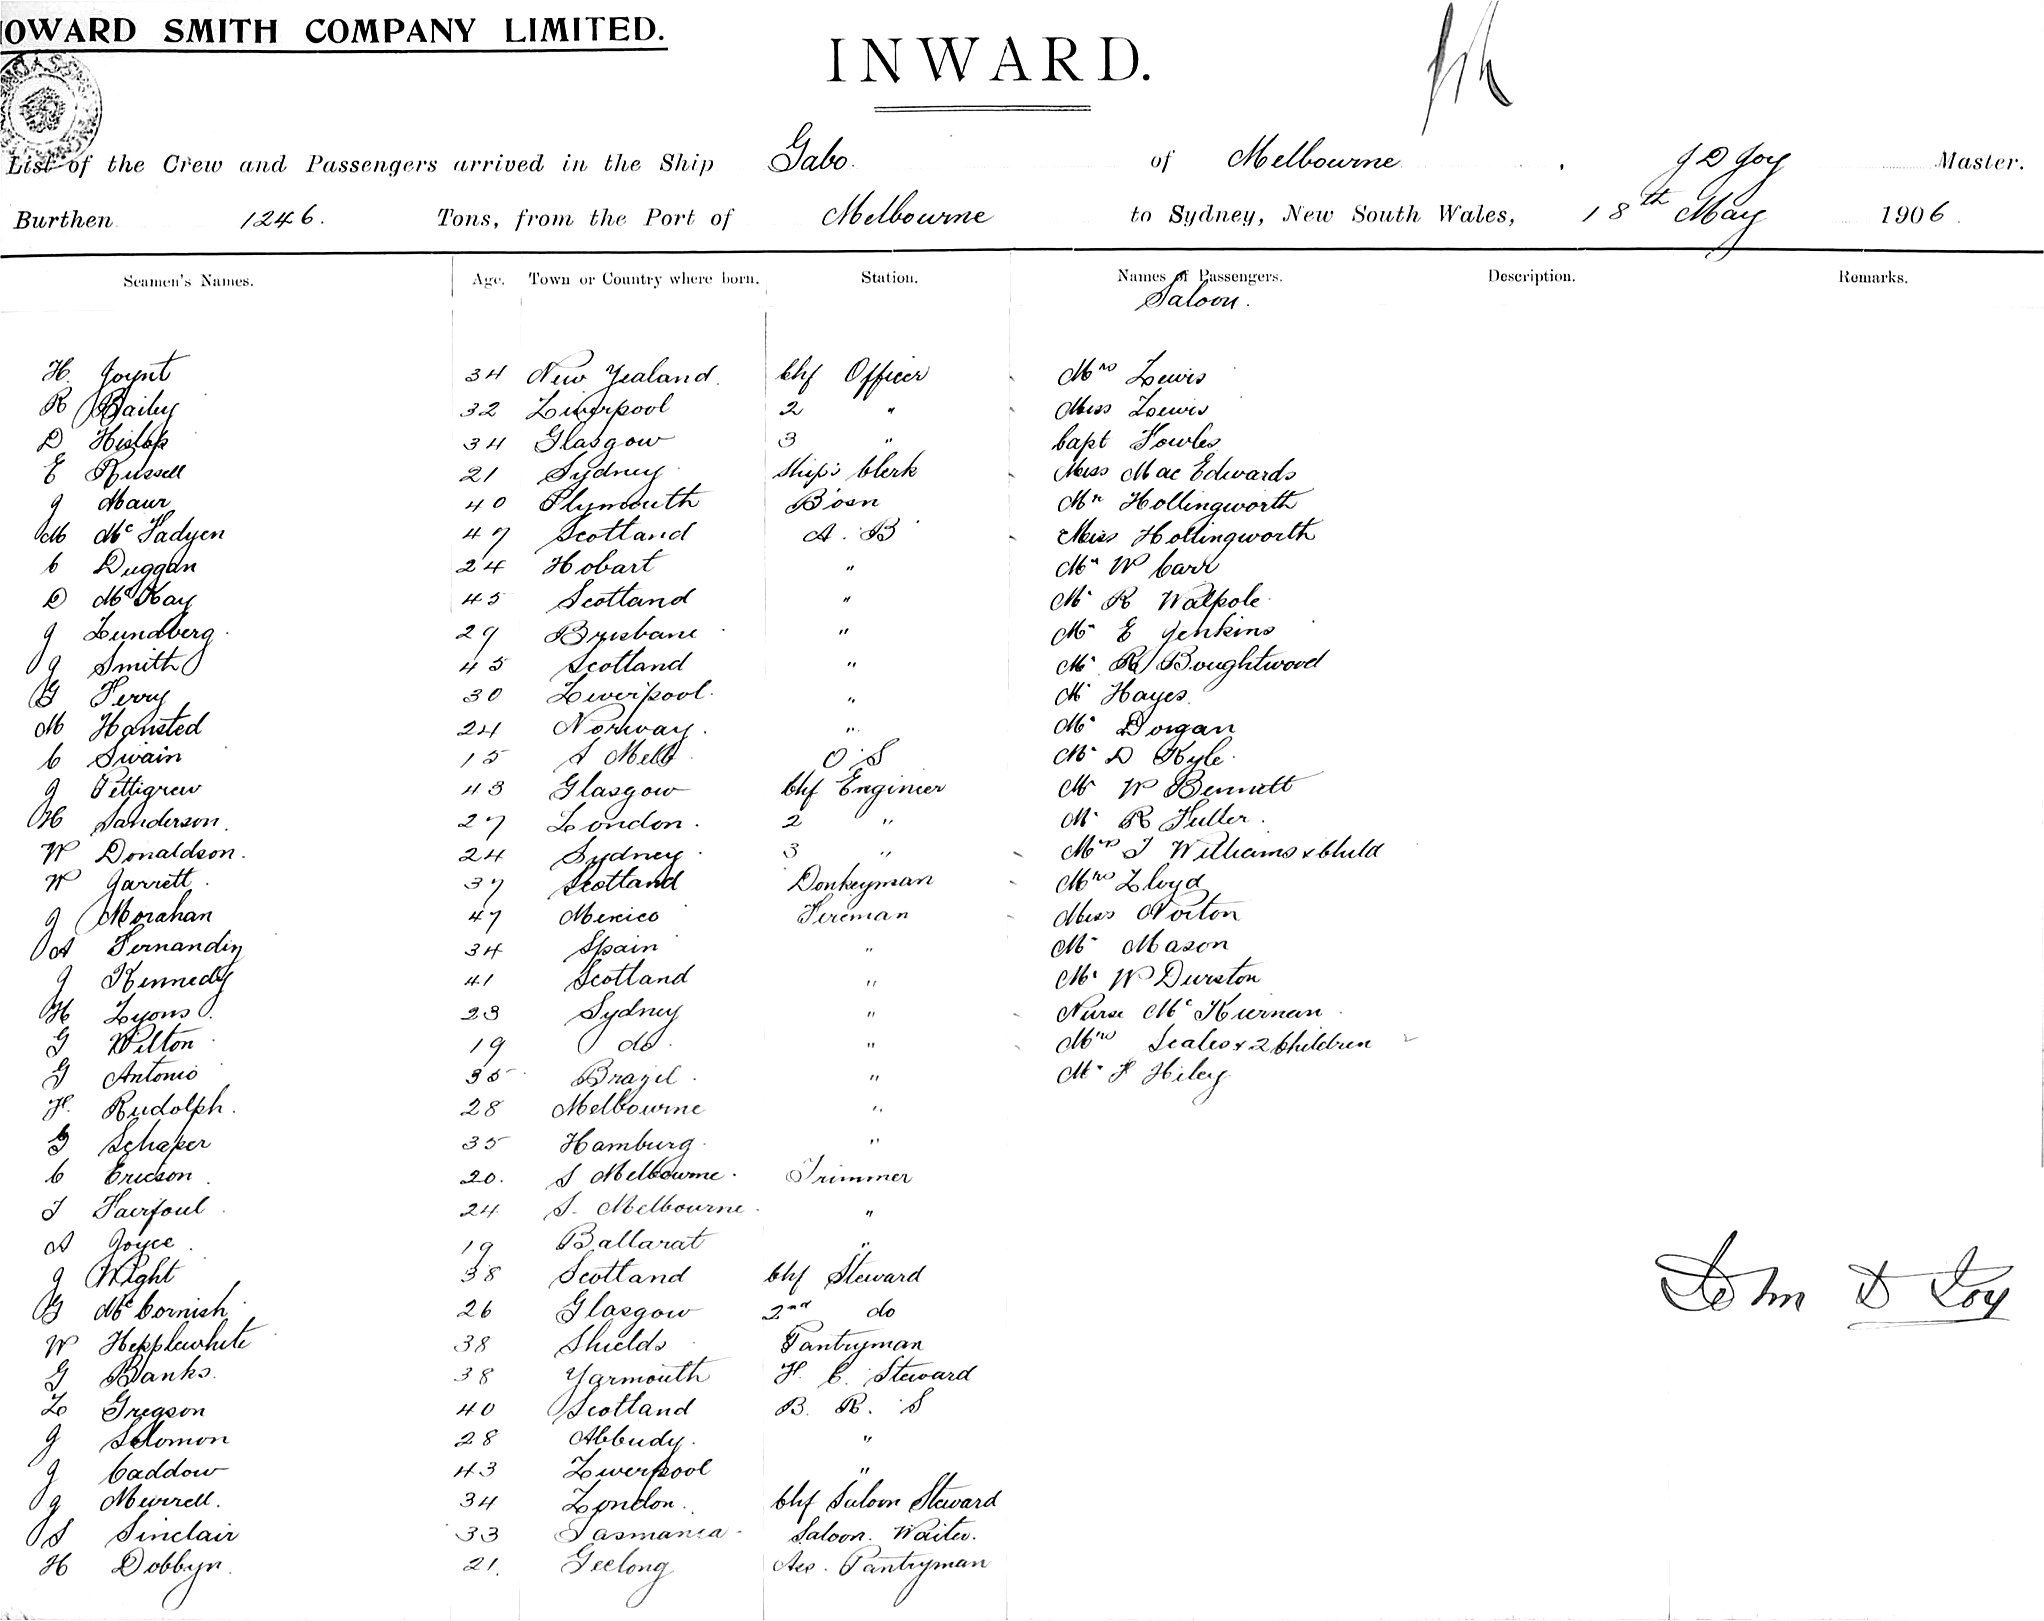 OWARD SMITH COMPANY LIMITED.
INWARD.
List of the Crew and Passengers arrived in the Ship Gabo. of Melbourne J D Joy Master.
Burthen 1246. Tons, from the Port of Melbourne to Sydney, New South Wales, 18th May 1906.
Seamen's Names. Age. Town or Country where born. Station. Names of Passengers. Description. Remarks.
Saloon.
H. Joynt 34 New Zealand. Chf Officer Mrs Lewis
R Bailey 32 Liverpool 2 " Miss Lewis
D Hislop 34 Glasgow 3 " Capt Fowles
E Russell 21 Sydney Ship's Clerk Miss Mac Edwards
J Maur 40 Plymouth Bosn Mr Hollingworth
M McFadyen 47 Scotland A. B Miss Hollingworth
C Duggan 24 Hobart " Mr W Carr
D McKay 45 Scotland " Mr R Walpole
J Lundberg. 29 Brisbane " Mr E Jenkins
J Smith 45 Scotland " Mr R Boughtwood
G Perry 30 Liverpool. " Mr Hayes
M Hansted 24 Norway. " Mr Dorgan
C Swain 15 S Melb O S Mr D Kyle.
J Pettigrew 43 Glasgow Chf Engineer Mr W Bennett
H Sanderson. 27 London. 2 " Mr R Fuller.
W Donaldson. 24 Sydney 3 " Mrs J Williams & Child
W Garrett. 37 Scotland Donkeyman Mrs Lloyd
J Morahan 47 Mexico Fireman Miss Norton
A Fernandin 34 Spain " Mr Mason
J Kennedy 41 Scotland " Mr W Durston
H Lyons. 23 Sydney " Nurse McKiernan
G Wilton 19 do. " Mrs Scales & 2 Children
G Antonio 35 Brazil. " Mr F Hiley
F. Rudolph. 28 Melbourne "
G Schaper 35 Hamburg. "
C Ericson 20. S Melbourne. Trimmer
J Fairfoul 24 S. Melbourne. "
A Joyce. 19 Ballarat "
J Wight 38 Scotland Chf Steward
G McCornish 26 Glasgow 2nd do
John D Joy
W Hepplewhite 38 Shields Pantryman
G Banks. 38 Yarmouth F. C. Steward
L Gregson 40 Scotland B. R. S
J Solomon 28 "
J Caddow 43 Liverpool "
J Murrell. 34 London. Chf Saloon Steward
S Sinclair 33 Tasmania. Saloon. Waiter.
H Dobbyn. 21. Geelong Ass. Pantryman